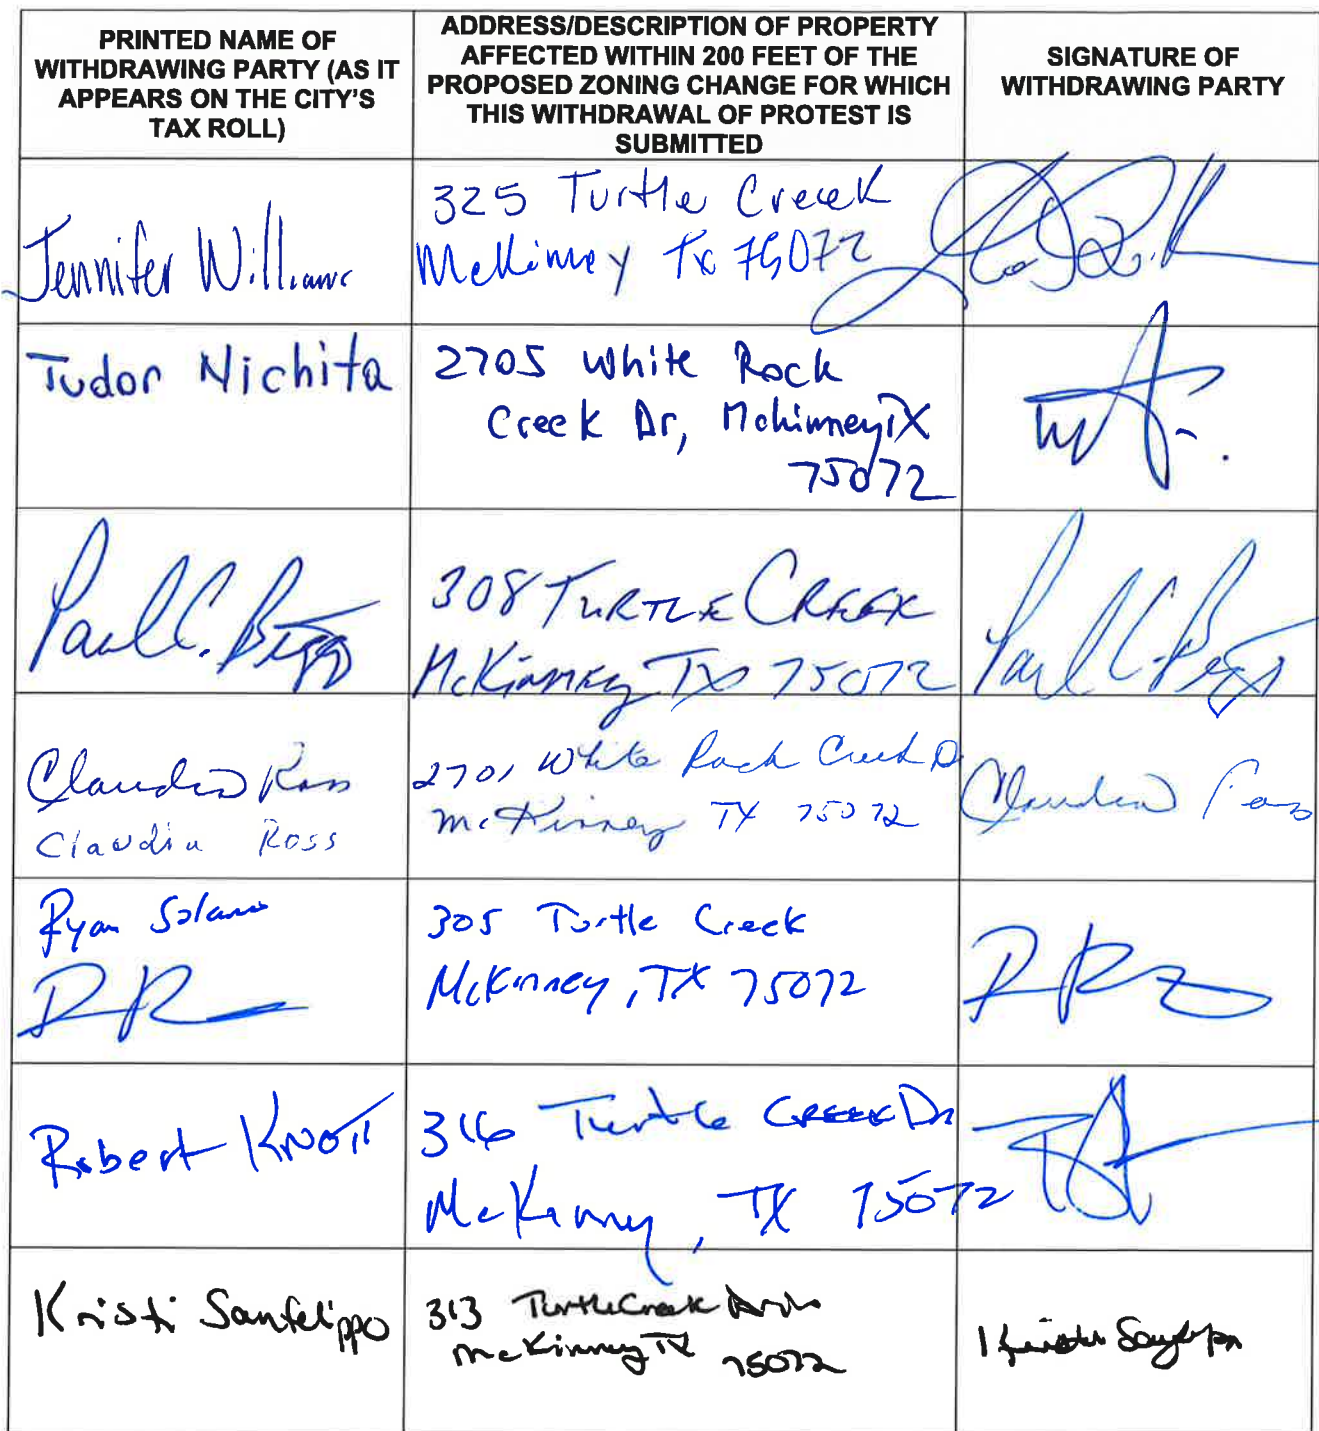 PRINTED NAME OF
WITHDRAWING PARTY (AS IT
APPEARS ON THE CITY'S
TAX ROLL)
ADDRESS/DESCRIPTION OF PROPERTY
AFFECTED WITHIN 200 FEET OF THE
PROPOSED ZONING CHANGE FOR WHICH
THIS WITHDRAWAL OF PROTEST IS
SUBMITTED
SIGNATURE OF
WITHDRAWING PARTY
Jennifer Williams
325 Turtle Creek
McKinney Tx 75072
Tudor Nichita
2705 White Rock
Creek Dr, McKinney TX
75072
Paul C. Bigg
308 TURTLE CREEK
McKinney TX 75072
Paul C. Bigg
Claudia Ross
Claudia Ross
2701 White Rock Creek D
McKinney TX 75072
Claudia Ross
Ryan Solano
305 Turtle Creek
McKinney, TX 75072
Robert KNOTT
316 Turtle CREEK Dr
McKinney, TX 75072
Kristi Sanfelippo
313 Turtle Creek Drive
McKinney TX
75072
Kristi Sanfelippo